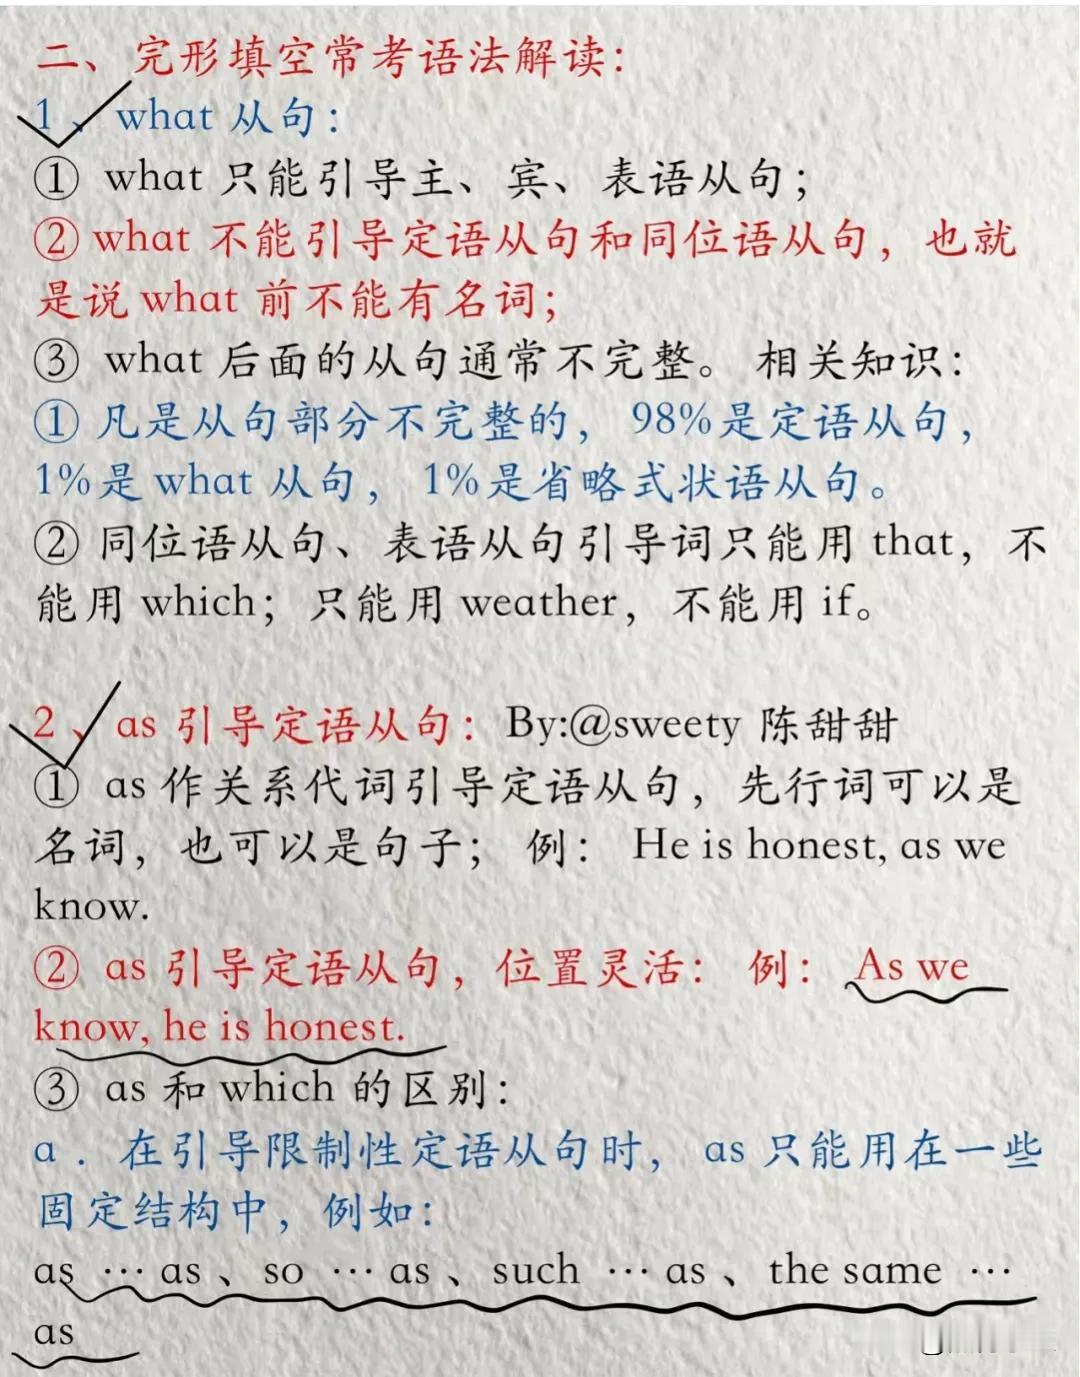 二、完形填空常考语法解读：
1、what 从句：
① what 只能引导主、宾、表语从句；
② what 不能引导定语从句和同位语从句，也就
是说 what 前不能有名词；
③ what 后面的从句通常不完整。 相关知识：
① 凡是从句部分不完整的， 98%是定语从句，
1%是 what 从句， 1%是省略式状语从句。
② 同位语从句、表语从句引导词只能用 that，不
能用 which；只能用 weather，不能用 if。
2、as 引导定语从句：By:@sweety 陈甜甜
① as 作关系代词引导定语从句，先行词可以是
名词，也可以是句子； 例： He is honest, as we
know.
② as 引导定语从句，位置灵活： 例： As we
know, he is honest.
③ as 和 which 的区别：
a . 在引导限制性定语从句时， as 只能用在一些
固定结构中，例如：
as … as 、so … as 、such … as 、the same …
as